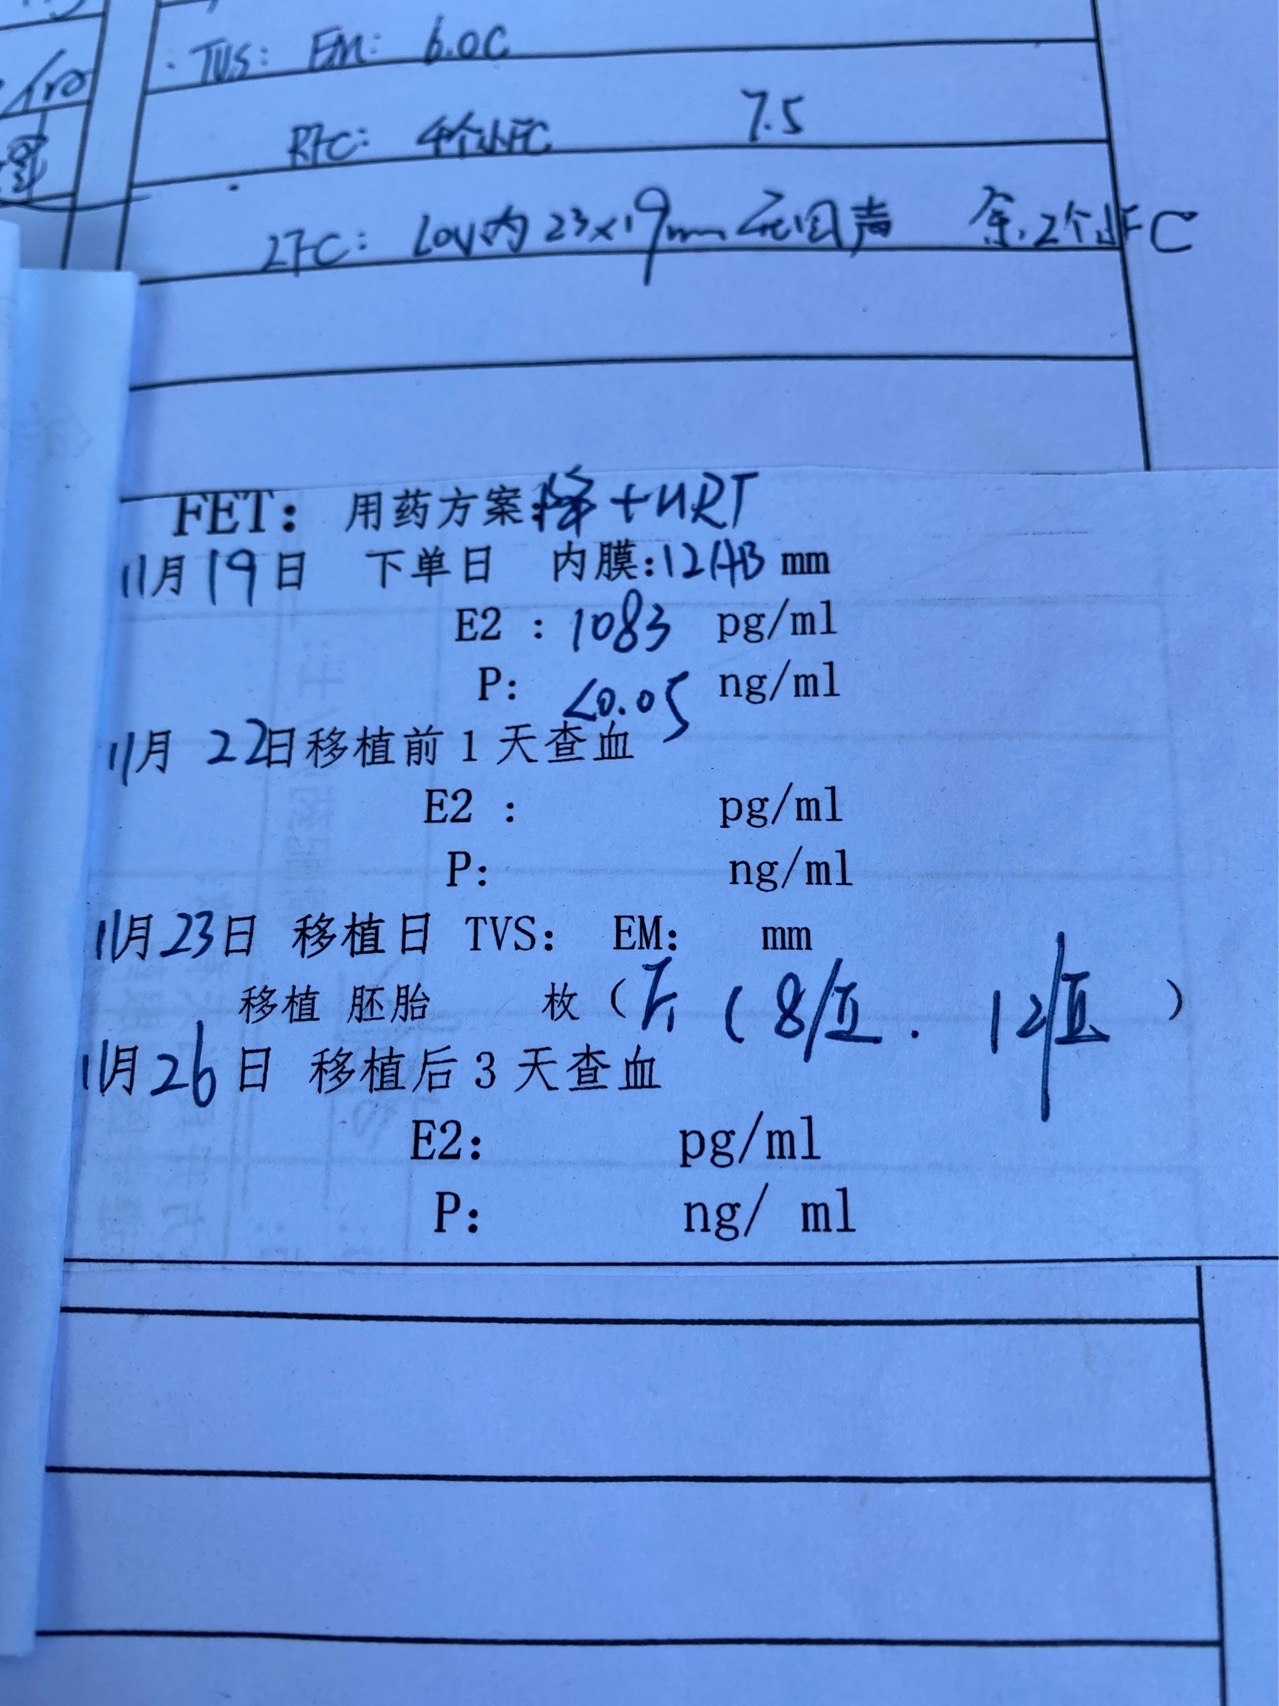 TVS: EM: 6.0C
RFC: 4个小FC 7.5
LFC: LOV内 23×19mm无回声 余2个小FC
FET: 用药方案:降+HRT
11月19日 下单日 内膜: mm
E2 : 1083 pg/ml
P: <0.05 ng/ml
11月 22日移植前1天查血
E2 : pg/ml
P: ng/ml
11月23日 移植日 TVS: EM: mm
移植 胚胎 枚( (8/II. 12/II )
11月26日 移植后3天查血
E2: pg/ml
P: ng/ ml